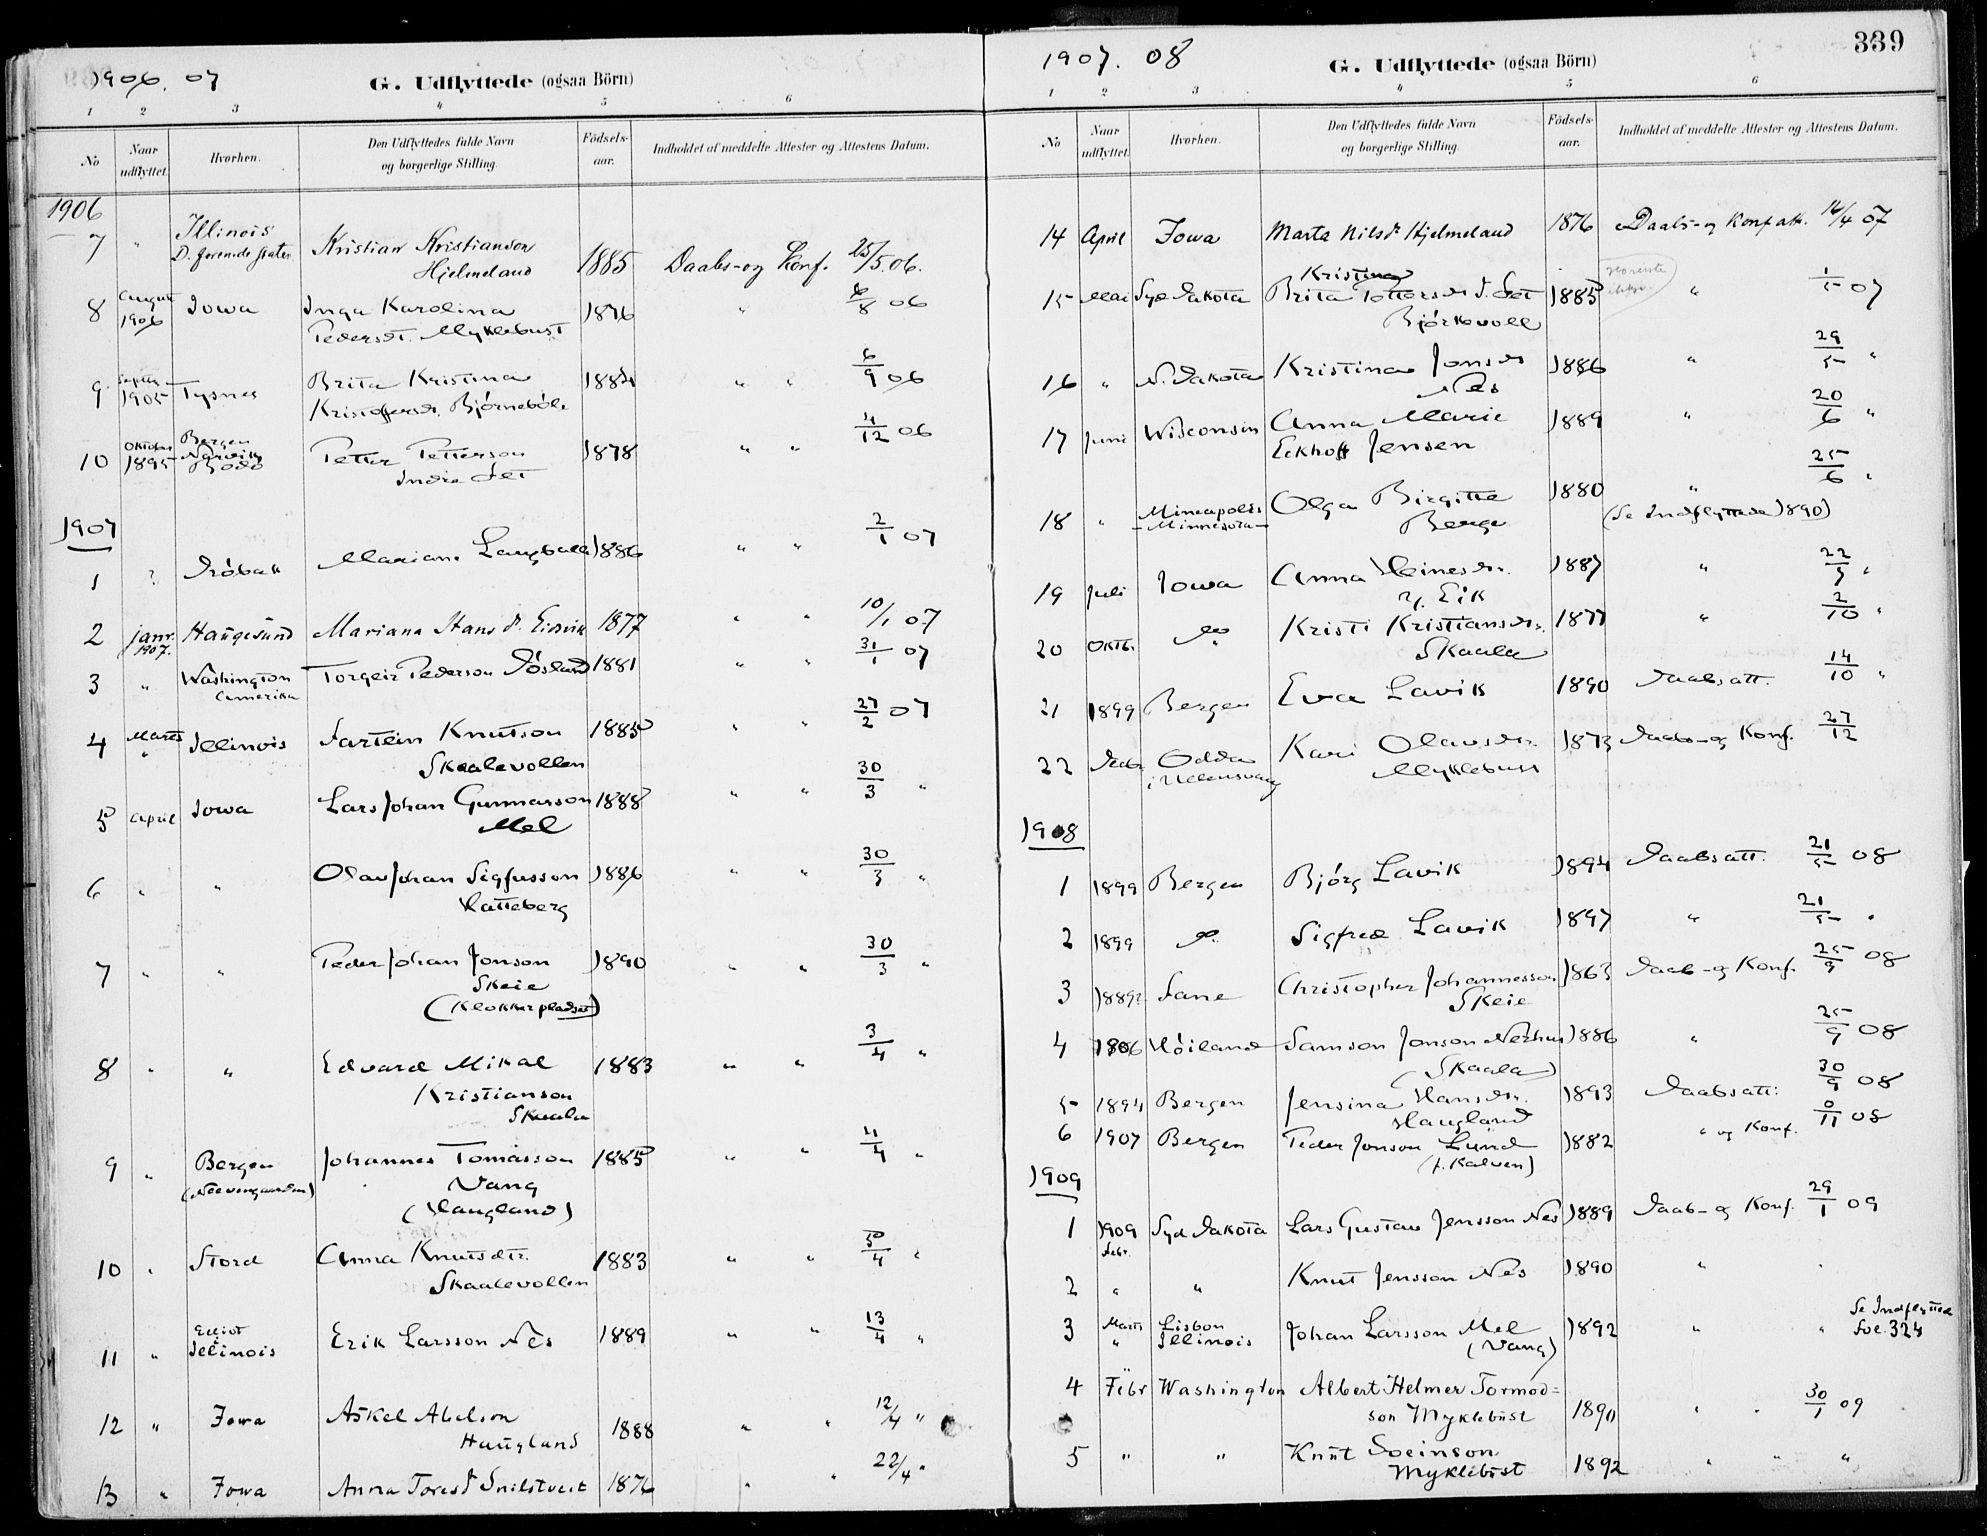 1906. 07
G. Udflyttede (ogsaa Börn)
1 2 3 4 5 6
No
Naar udflyttet.
Hvorhen.
Den Udflyttedes fulde Navn og borgerlige Stilling.
Födsels-aar.
Indholdet af meddelte Attester og Attestens Datum.
1906
7 " Illinois D. forenede Stater Kristian Kristianson Hjelmeland 1885 Daabs- og Konf. 25/5 06.
8 August 1906 Iowa Inga Karolina Pedersdt. Myklebust 1876 " 6/8 06
9 Septbr 1905 Tysnes Brita Kristina Kristoffersdr. Björneböle 1884 " " 6/9 06
10 Oktober 1895 Bergen Narvik Bodö Petter Petterson Indre Set 1878 " " 4/12 06
1907
1 ? Dröbak Mariane 1886 " " 2/1 07
2 janr. 1907. Haugesund Mariana Hans d. Eidsvik 1877 " " 10/1 07
3 " Washington Amerika Torgeir Pederson 1881 " " 31/1 07
4 Marts " Illinois Sartein Knutson Skaalevollen 1885 " " 27/2 07
5 April Iowa Lars Johan Gunnarson Mel 1888 " " 30/3 "
6 " " Olav Johan Sigfusson Hatteberg 1886 " " 30/3 "
7 " " Peder Johan Jonson Skeie (Klokkerpladset) 1890 " " 30/3 "
8 " " Edvard Mikal Kristianson Skaala 1883 " " 3/4 "
9 " Bergen (Neevengaarden) Johannes Tomasson Vang (Haugland) 1885 " " 4/4 "
10 " Stord Anna Knutsdtr. Skaalevollen 1883 " " 5/4 "
11 " Elliot Illinois Erik Larsson Nes 1889 " " 13/4 "
12 " Iowa Askel Abelson Haugland 1888 " " 12/4 "
13 " Iowa Anna Toresd Snilstveit 1876 " " 22/4 "
1907. 08
G. Udflyttede (ogsaa Börn)
339
1 2 3 4 5 6
No
Naar udflyttet.
Hvorhen.
Den Udflyttedes fulde Navn og borgerlige Stilling.
Födsels-aar.
Indholdet af meddelte Attester og Attestens Datum.
14 April Iowa Marta Nilsd. Hjelmeland 1876 Daabs- og Konf att. 14/4 07
15 Mai Syd Dakota Brita Kristina Pettersdr. I. Set Björkevoll 1885 " 1/5 07
16 " N. Dakota Kristina Jonsdr Nes 1886 " 29/5 "
17 Juni Wisconsin Anna Marie Eckhoff Jensen 1889 " 20/6 "
18 " Mineapolis Minnesota Olga Birgitte Berge 1880 " 25/6 "
(Se Indflyttede 1890)
19 Juli Iowa Anna Heinesdr. y. Eik 1887 " 22/7 "
20 Oktb. do Kristi Kristiansdr. Skaala 1877 " 2/10 "
21 1899 Bergen Eva Lavik 1890 Daabsatt. 14/10 "
22 Odda i Ullensvang Kari Olavsdr. Myklebust 1873 Daabs- og Konf. 27/12
1908
1 1899 Bergen Björg Lavik 1894 Daabsatt. 21/5 08
2 1899 do. Sigfred Lavik 1897 " 21/5 "
3 1889? Fane Christopher Johannesson Skeie 1863 Daab- og Konf. 25/9 08
4 1906 Höiland Samson Jonson Nerhus (Skaala) 1886 " 25/9 08
5 1894 Bergen Jensina Hansdr. Haugland 1893 Daabsatt. 30/9 08
6 1907 Bergen Peder Jonson Lund (f. Kalven) 1882 " og Konf. 11 08
1909
1 1909 Febr. Syd Dakota Lars Gustav Jensson Nes 1889 Daab- og Konf. 29/1 09
2 " " Knut Jensson Nes 1890 " "
3 Marts " Lisbon Illinois Johan Larsson Mel (Vang) 1892 " " Se Indflyttede Fol. 324
4 Febr Washington Albert Helmer Tormod=son Myklebust 1890 " " 30/1 09
5 " " Knut Sveinson Myklebust 1892 " " "